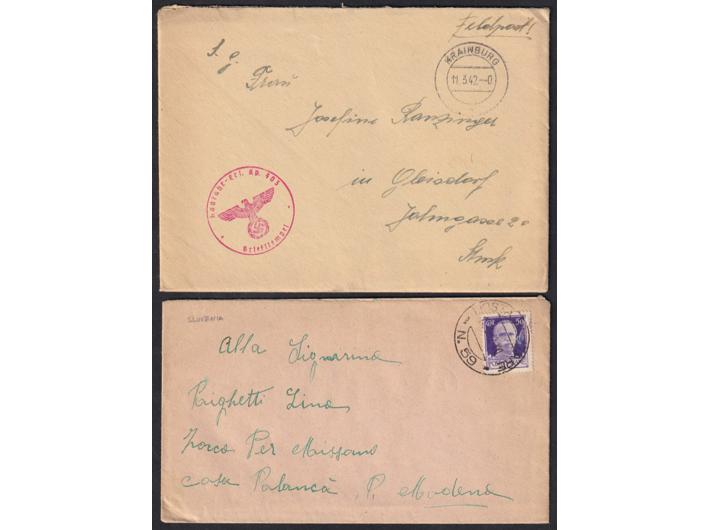 Feldpost!
KRAINBURG
11.3.42.--0
S. G.
Frau
Josefine Ranzinger
in Gleisdorf
Jahngasse 20
Stmk
Kp. 403
Briefstempel
SLOVENIA
N. 59
50
Alla Signorina
Righetti Lina
Per Missano
casa Palancà, P. Modena